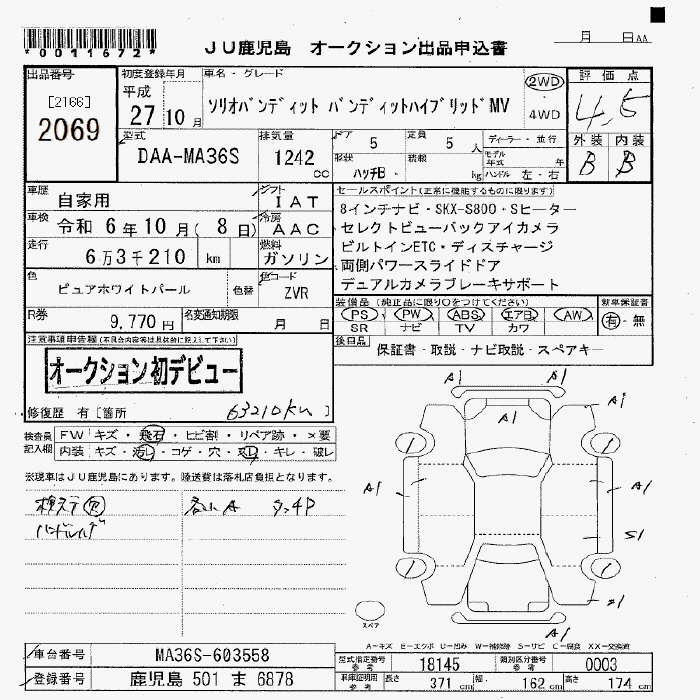 *0011672*
JU鹿児島 オークション出品申込書
月 日AA
出品番号
[2166]
2069
初度登録年月
平成
27 10 月
車名・グレード
ソリオバンディット バンディットハイブリッドMV
2WD
4WD
評価点
4.5
外装 内装
B B
型式
DAA-MA36S
排気量
1242
cc
ドア
5
定員
5 人
ディーラー・並行
形状
ハッチB
積載
kg
モデル年式 年
ハンドル 左・右
車歴
自家用
シフト
IAT
車検
令和 6年10月( 8日)
冷房
AAC
走行
6万3千210 km
燃料
ガソリン
色
ピュアホワイトパール
色替
色コード
ZVR
R券
9,770 円
名変通知期限
月 日
セールスポイント(正常に機能するものに限ります)
8インチナビ・SKX-S800・Sヒーター
セレクトビューバックアイカメラ
ビルトインETC・ディスチャージ
両側パワースライドドア
デュアルカメラブレーキサポート
装備品(純正品に限り○をつけてください)
新車保証書
PS PW ABS エアB AW
有・無
SR ナビ TV カワ
後日品
保証書・取説・ナビ取説・スペアキー
注意事項申告欄(不具合内容等は具体的に記入して下さい)
オークション初デビュー
修復歴 有[箇所 63210km ]
検査員記入欄
FW キズ・飛石・ヒビ割・リペア跡・×要
内装 キズ・汚レ・コゲ・穴・凹・キレ・破レ
※現車はJU鹿児島にあります。陸送費は落札店負担となります。
A1
A1
A1
A1
A1
S1
A1
スペア
A-キズ E-エクボ U-凹み W-補修跡 S-サビ C-腐食 XX-交換済
車台番号
MA36S-603558
登録番号
鹿児島 501 ま 6878
型式指定番号
参考
18145
類別区分番号
参考
0003
車庫証明用
参考
長さ 371 cm
幅 162 cm
高さ 174 cm